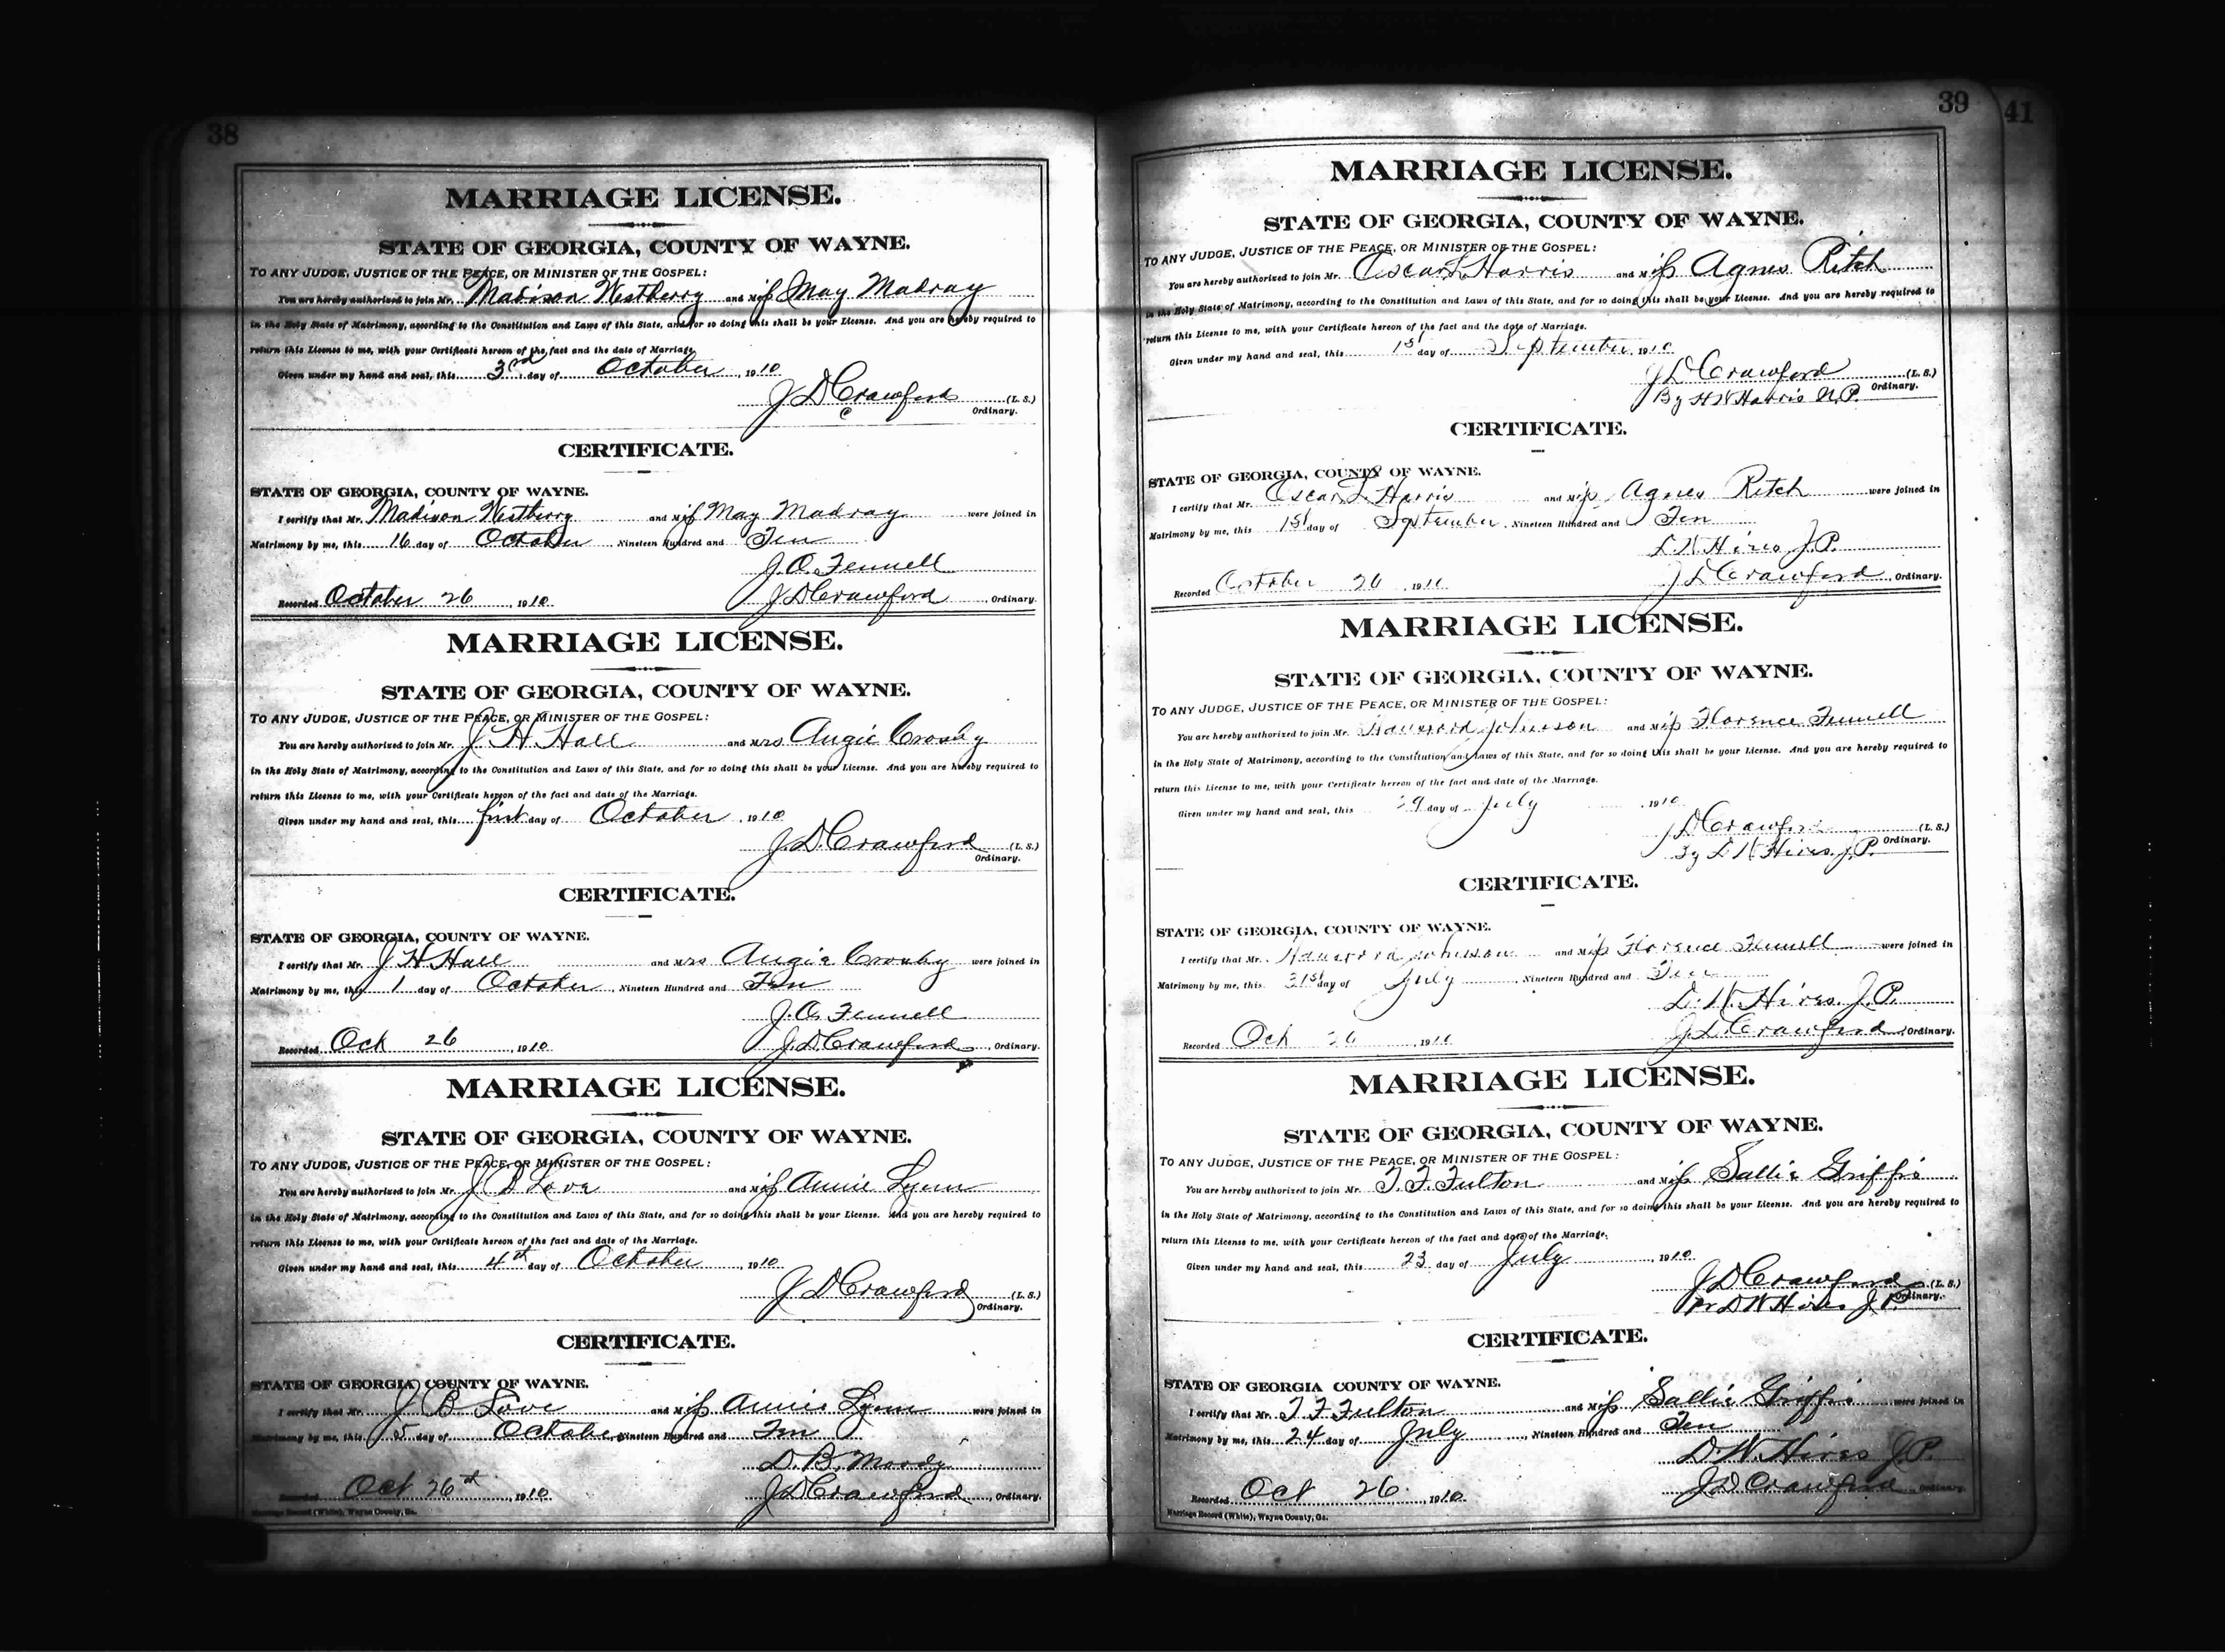 38
MARRIAGE LICENSE.
STATE OF GEORGIA, COUNTY OF WAYNE.
TO ANY JUDGE, JUSTICE OF THE PEACE, OR MINISTER OF THE GOSPEL:
You are hereby authorized to join Mr. Madison Westberry and Miss May Madray
in the Holy State of Matrimony, according to the Constitution and Laws of this State, and for so doing this shall be your License. And you are hereby required to
return this License to me, with your Certificate hereon of the fact and the date of Marriage.
Given under my hand and seal, this 3rd day of October, 1910
J D Crawford (L. S.)
Ordinary.
CERTIFICATE.
STATE OF GEORGIA, COUNTY OF WAYNE.
I certify that Mr. Madison Westberry and Miss May Madray were joined in
Matrimony by me, this 16 day of October, Nineteen Hundred and Ten
J. O. Fennell
Recorded October 26, 1910. J D Crawford, Ordinary.
MARRIAGE LICENSE.
STATE OF GEORGIA, COUNTY OF WAYNE.
TO ANY JUDGE, JUSTICE OF THE PEACE, OR MINISTER OF THE GOSPEL:
You are hereby authorized to join Mr. J. H. Hall and Mrs Angie Crosby
in the Holy State of Matrimony, according to the Constitution and Laws of this State, and for so doing this shall be your License. And you are hereby required to
return this License to me, with your Certificate hereon of the fact and date of the Marriage.
Given under my hand and seal, this first day of October, 1910
J. D. Crawford (L. S.)
Ordinary.
CERTIFICATE.
STATE OF GEORGIA, COUNTY OF WAYNE.
I certify that Mr. J H Hall and Mrs Angie Crosby were joined in
Matrimony by me, this 1 day of October, Nineteen Hundred and Ten
J. O. Fennell
Recorded Oct 26, 1910 J. D. Crawford, Ordinary.
MARRIAGE LICENSE.
STATE OF GEORGIA, COUNTY OF WAYNE.
TO ANY JUDGE, JUSTICE OF THE PEACE, OR MINISTER OF THE GOSPEL:
You are hereby authorized to join Mr. J B Love and Miss Annie Lynn
in the Holy State of Matrimony, according to the Constitution and Laws of this State, and for so doing this shall be your License. And you are hereby required to
return this License to me, with your Certificate hereon of the fact and date of the Marriage.
Given under my hand and seal, this 4th day of October, 1910
J D Crawford (L. S.)
Ordinary.
CERTIFICATE.
STATE OF GEORGIA, COUNTY OF WAYNE.
I certify that Mr. J B Love and Miss Annie Lynn were joined in
Matrimony by me, this 5 day of October, Nineteen Hundred and Ten
D. B. Moody
Recorded Oct 26th, 1910 J D Crawford, Ordinary.
Marriage Record (White), Wayne County, Ga.
39
41
MARRIAGE LICENSE.
STATE OF GEORGIA, COUNTY OF WAYNE.
TO ANY JUDGE, JUSTICE OF THE PEACE, OR MINISTER OF THE GOSPEL:
You are hereby authorized to join Mr. Oscar L Harris and Miss Agnes Ritch
in the Holy State of Matrimony, according to the Constitution and Laws of this State, and for so doing this shall be your License. And you are hereby required to
return this License to me, with your Certificate hereon of the fact and the date of Marriage.
Given under my hand and seal, this 1st day of September, 1910
J D Crawford (L. S.)
By H W Harris N.P. Ordinary.
CERTIFICATE.
STATE OF GEORGIA, COUNTY OF WAYNE.
I certify that Mr. Oscar L Harris and Miss Agnes Ritch were joined in
Matrimony by me, this 1st day of September, Nineteen Hundred and Ten
D W Hires, J.P.
Recorded October 26, 1910 J D Crawford, Ordinary.
MARRIAGE LICENSE.
STATE OF GEORGIA, COUNTY OF WAYNE.
TO ANY JUDGE, JUSTICE OF THE PEACE, OR MINISTER OF THE GOSPEL:
You are hereby authorized to join Mr. Johnson and Miss Florence Fennell
in the Holy State of Matrimony, according to the Constitution and Laws of this State, and for so doing this shall be your License. And you are hereby required to
return this License to me, with your Certificate hereon of the fact and date of the Marriage.
Given under my hand and seal, this 29 day of July, 1910
J D Crawford (L. S.)
By D W Hires. J.P. Ordinary.
CERTIFICATE.
STATE OF GEORGIA, COUNTY OF WAYNE.
I certify that Mr. Johnson and Miss Florence Fennell were joined in
Matrimony by me, this 31st day of July, Nineteen Hundred and Ten
D. W. Hires. J.P.
Recorded Oct 26, 1910 J. D. Crawford, Ordinary.
MARRIAGE LICENSE.
STATE OF GEORGIA, COUNTY OF WAYNE.
TO ANY JUDGE, JUSTICE OF THE PEACE, OR MINISTER OF THE GOSPEL:
You are hereby authorized to join Mr. T. F. Fulton and Miss Sallie Griffis
in the Holy State of Matrimony, according to the Constitution and Laws of this State, and for so doing this shall be your License. And you are hereby required to
return this License to me, with your Certificate hereon of the fact and date of the Marriage.
Given under my hand and seal, this 23 day of July, 1910.
J D Crawford (L. S.)
Pr D W Hires J P Ordinary.
CERTIFICATE.
STATE OF GEORGIA COUNTY OF WAYNE.
I certify that Mr. T F Fulton and Miss Sallie Griffis were joined in
Matrimony by me, this 24 day of July, Nineteen Hundred and Ten
D. W. Hires J.P.
Recorded Oct 26, 1910. J. D. Crawford, Ordinary.
Marriage Record (White), Wayne County, Ga.